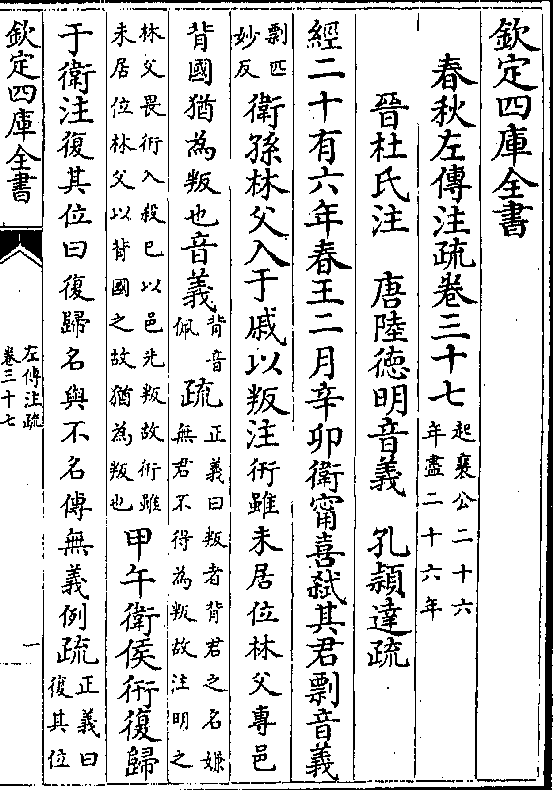 欽定四庫全書
春秋左傳注疏卷三十七
起襄公二十六
年盡二十六年
晉杜氏注　唐陸德明音義　孔穎達疏
經二十有六年春王二月辛卯衛甯喜弑其君剽音義
剽匹
妙反
衛孫林父入于戚以叛注衎雖未居位林父專邑
背國猶為叛也音義
背音
佩
疏
正義曰叛者背君之名嫌
無君不得為叛故注明之
林父畏衎入殺己以邑先叛故衎雖
未居位林父以背國之故猶為叛也
甲午衛侯衎復歸
于衛注復其位曰復歸名與不名傳無義例疏
正義曰
復其位
欽定四庫全書
左傳注疏
卷三十七
一